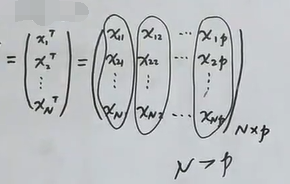 = (x₁ᵀ x₂ᵀ ⋮ x_Nᵀ) = (x₁₁ x₁₂ ⋯ x₁p
x₂₁ x₂₂ ⋯ x₂p
⋮ ⋮ ⋮
x_N1 x_N2 ⋯ x_Np)_N×p
N > p